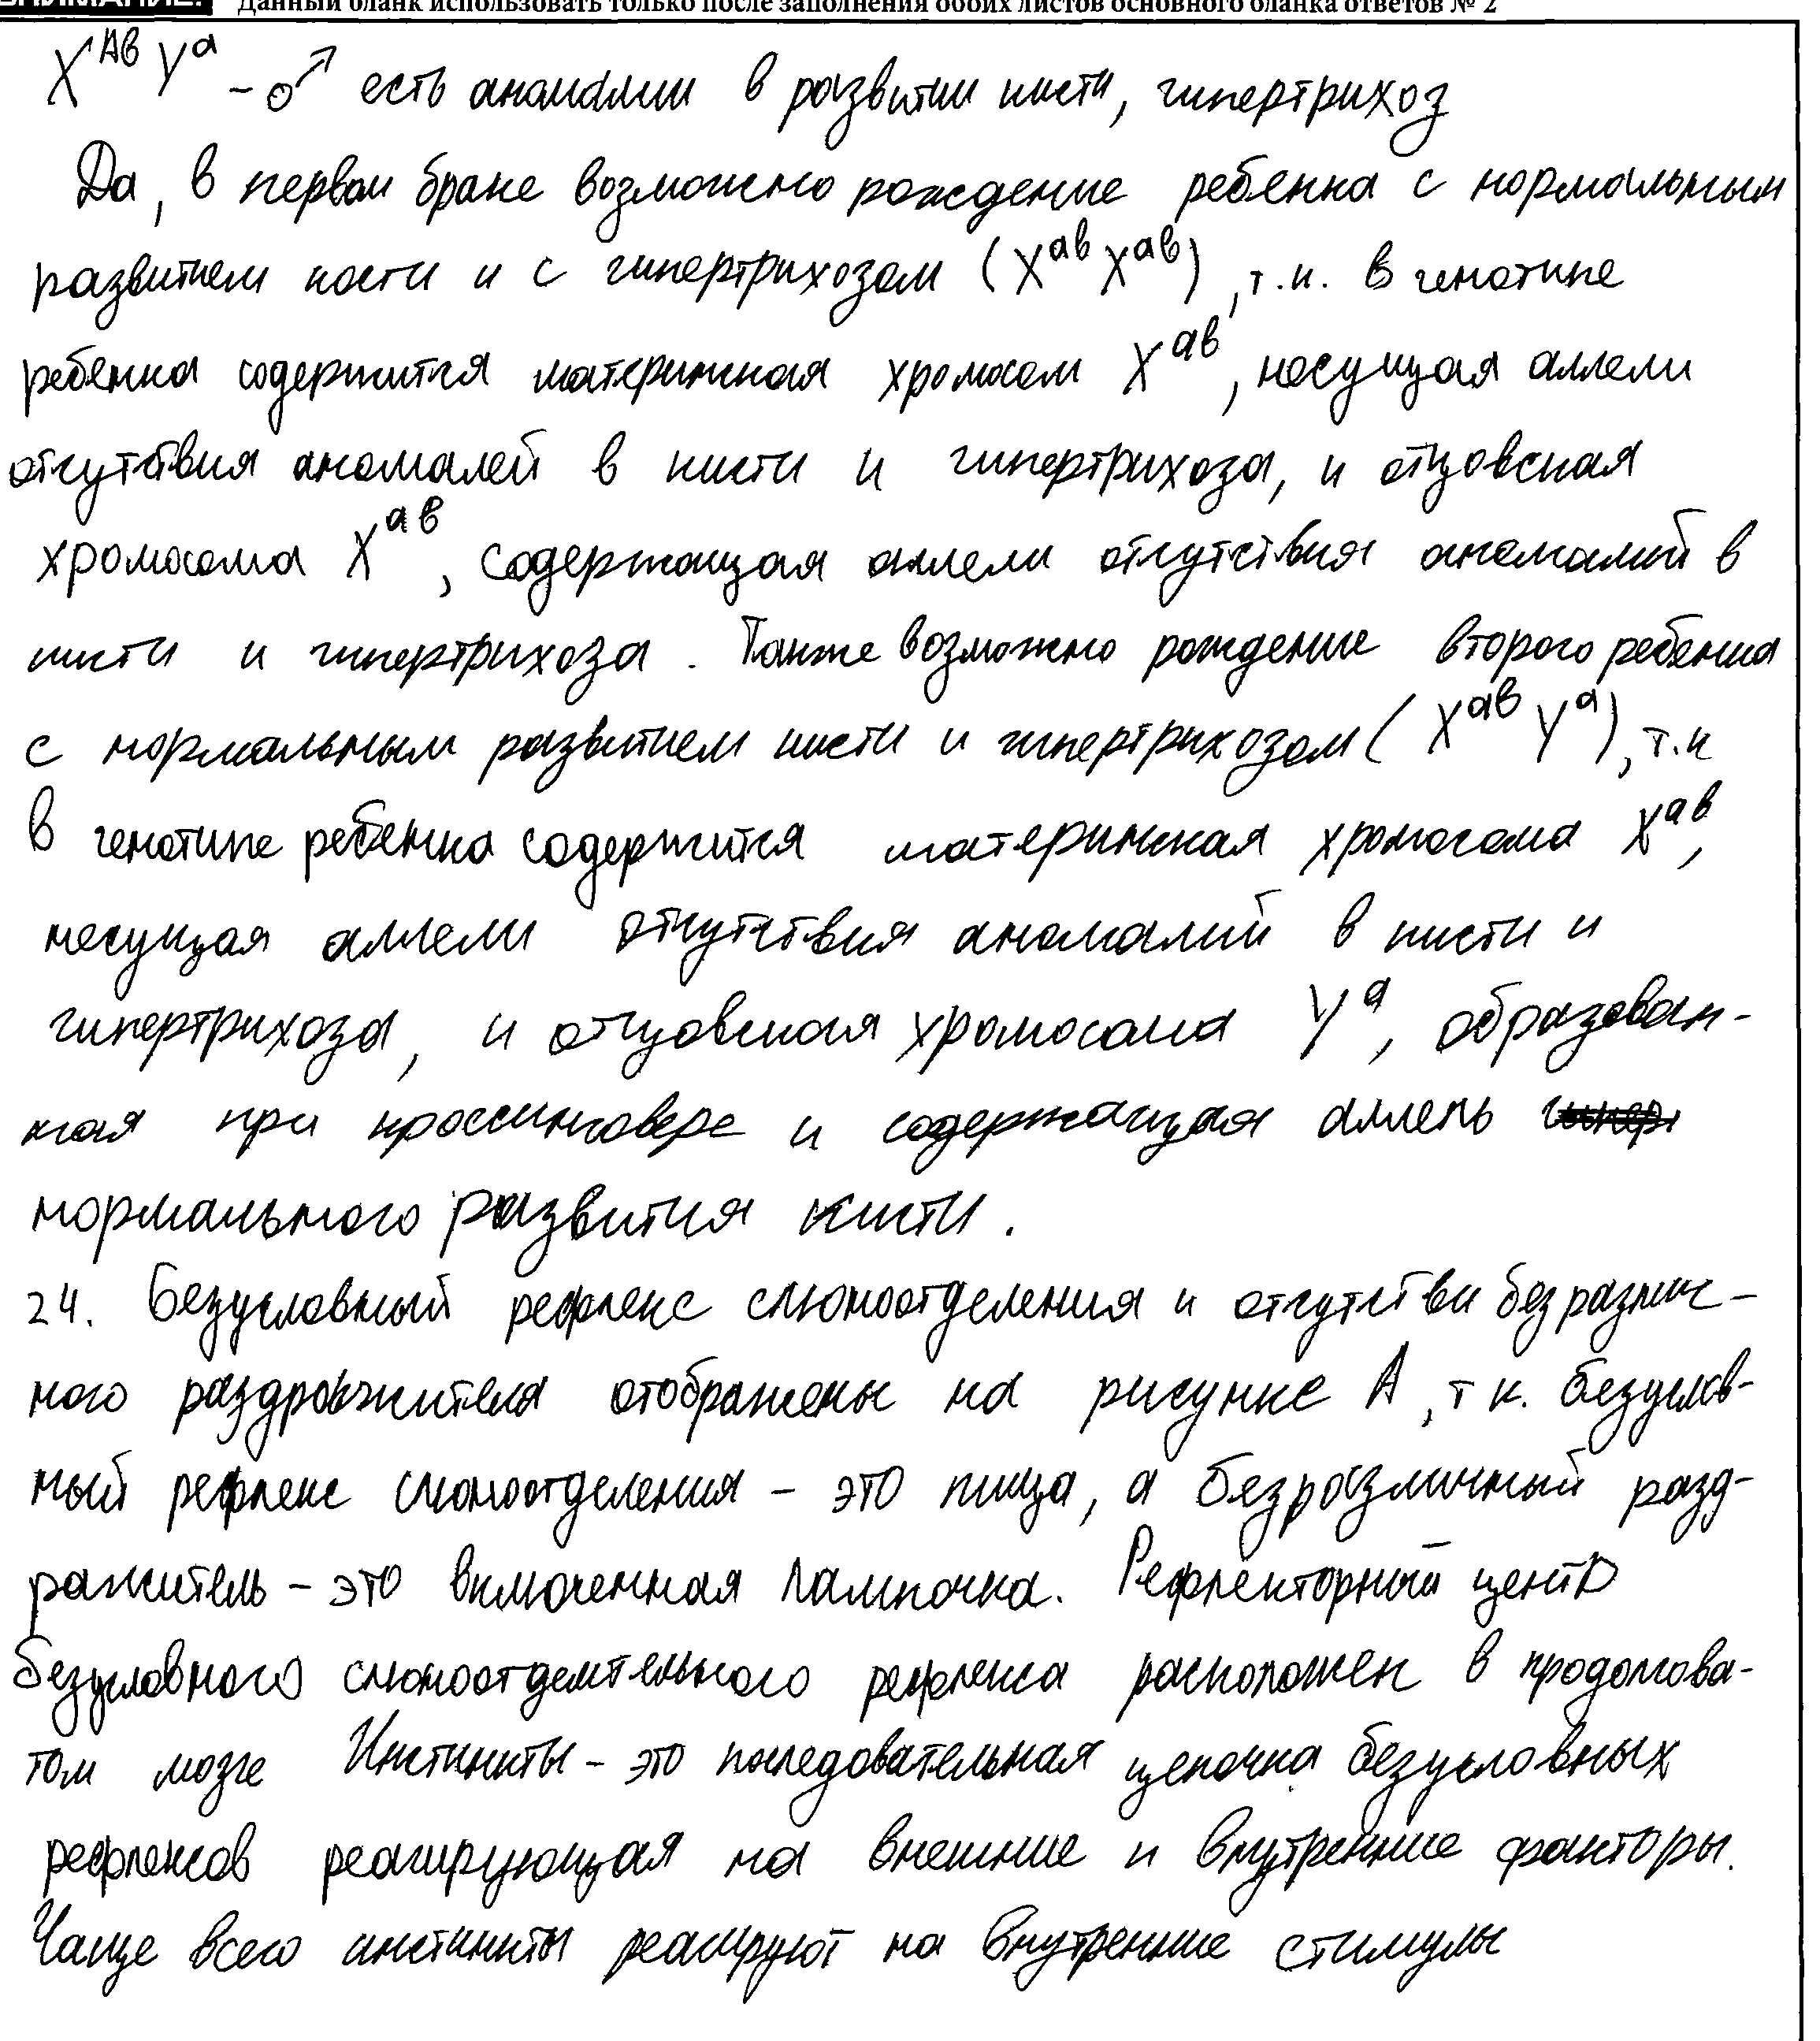 ВНИМАНИЕ! Данный бланк использовать только после заполнения обоих листов основного бланка ответов № 2
X^Aв Y^a - ♂ есть аномалии в развитии кисти, гипертрихоз
Да, в первом браке возможно рождение ребенка с нормальным
развитием кости и с гипертрихозом (X^aв X^aв), т.к. в генотипе
ребенка содержится материнская хромосом X^aв, несущая аллели
отсутствия аномалей в кисти и гипертрихоза, и отцовская
хромосома X^aв, содержащая аллели отсутствия аномалий в
кисти и гипертрихоза. Также возможно рождение второго ребенка
с нормальным развитием кисти и гипертрихозом (X^aв Y^a), т.к
в генотипе ребенка содержится материнская хромосома X^aв,
несущая аллели отсутствия аномалий в кисти и
гипертрихоза, и отцовская хромосома Y^a, образован-
ная при кроссинговере и содержащая аллель
нормального развития кисти.
24. Безусловный рефлекс слюноотделения и отсутстви безразлич-
ного раздражителя отображены на рисунке А, т к. безуслов-
ный рефлекс слюноотделения - это пища, а безразличный разд-
ражитель - это включенная лампочка. Рефлекторный центр
безусловного слюноотделтельного рефлекса расположен в продолгова-
том мозге Инстинкты - это последовательная цепочка безусловных
рефлексов реагирующая на внешние и внутренние факторы.
Чаще всего инстинкты реагируют на внутренние стимулы